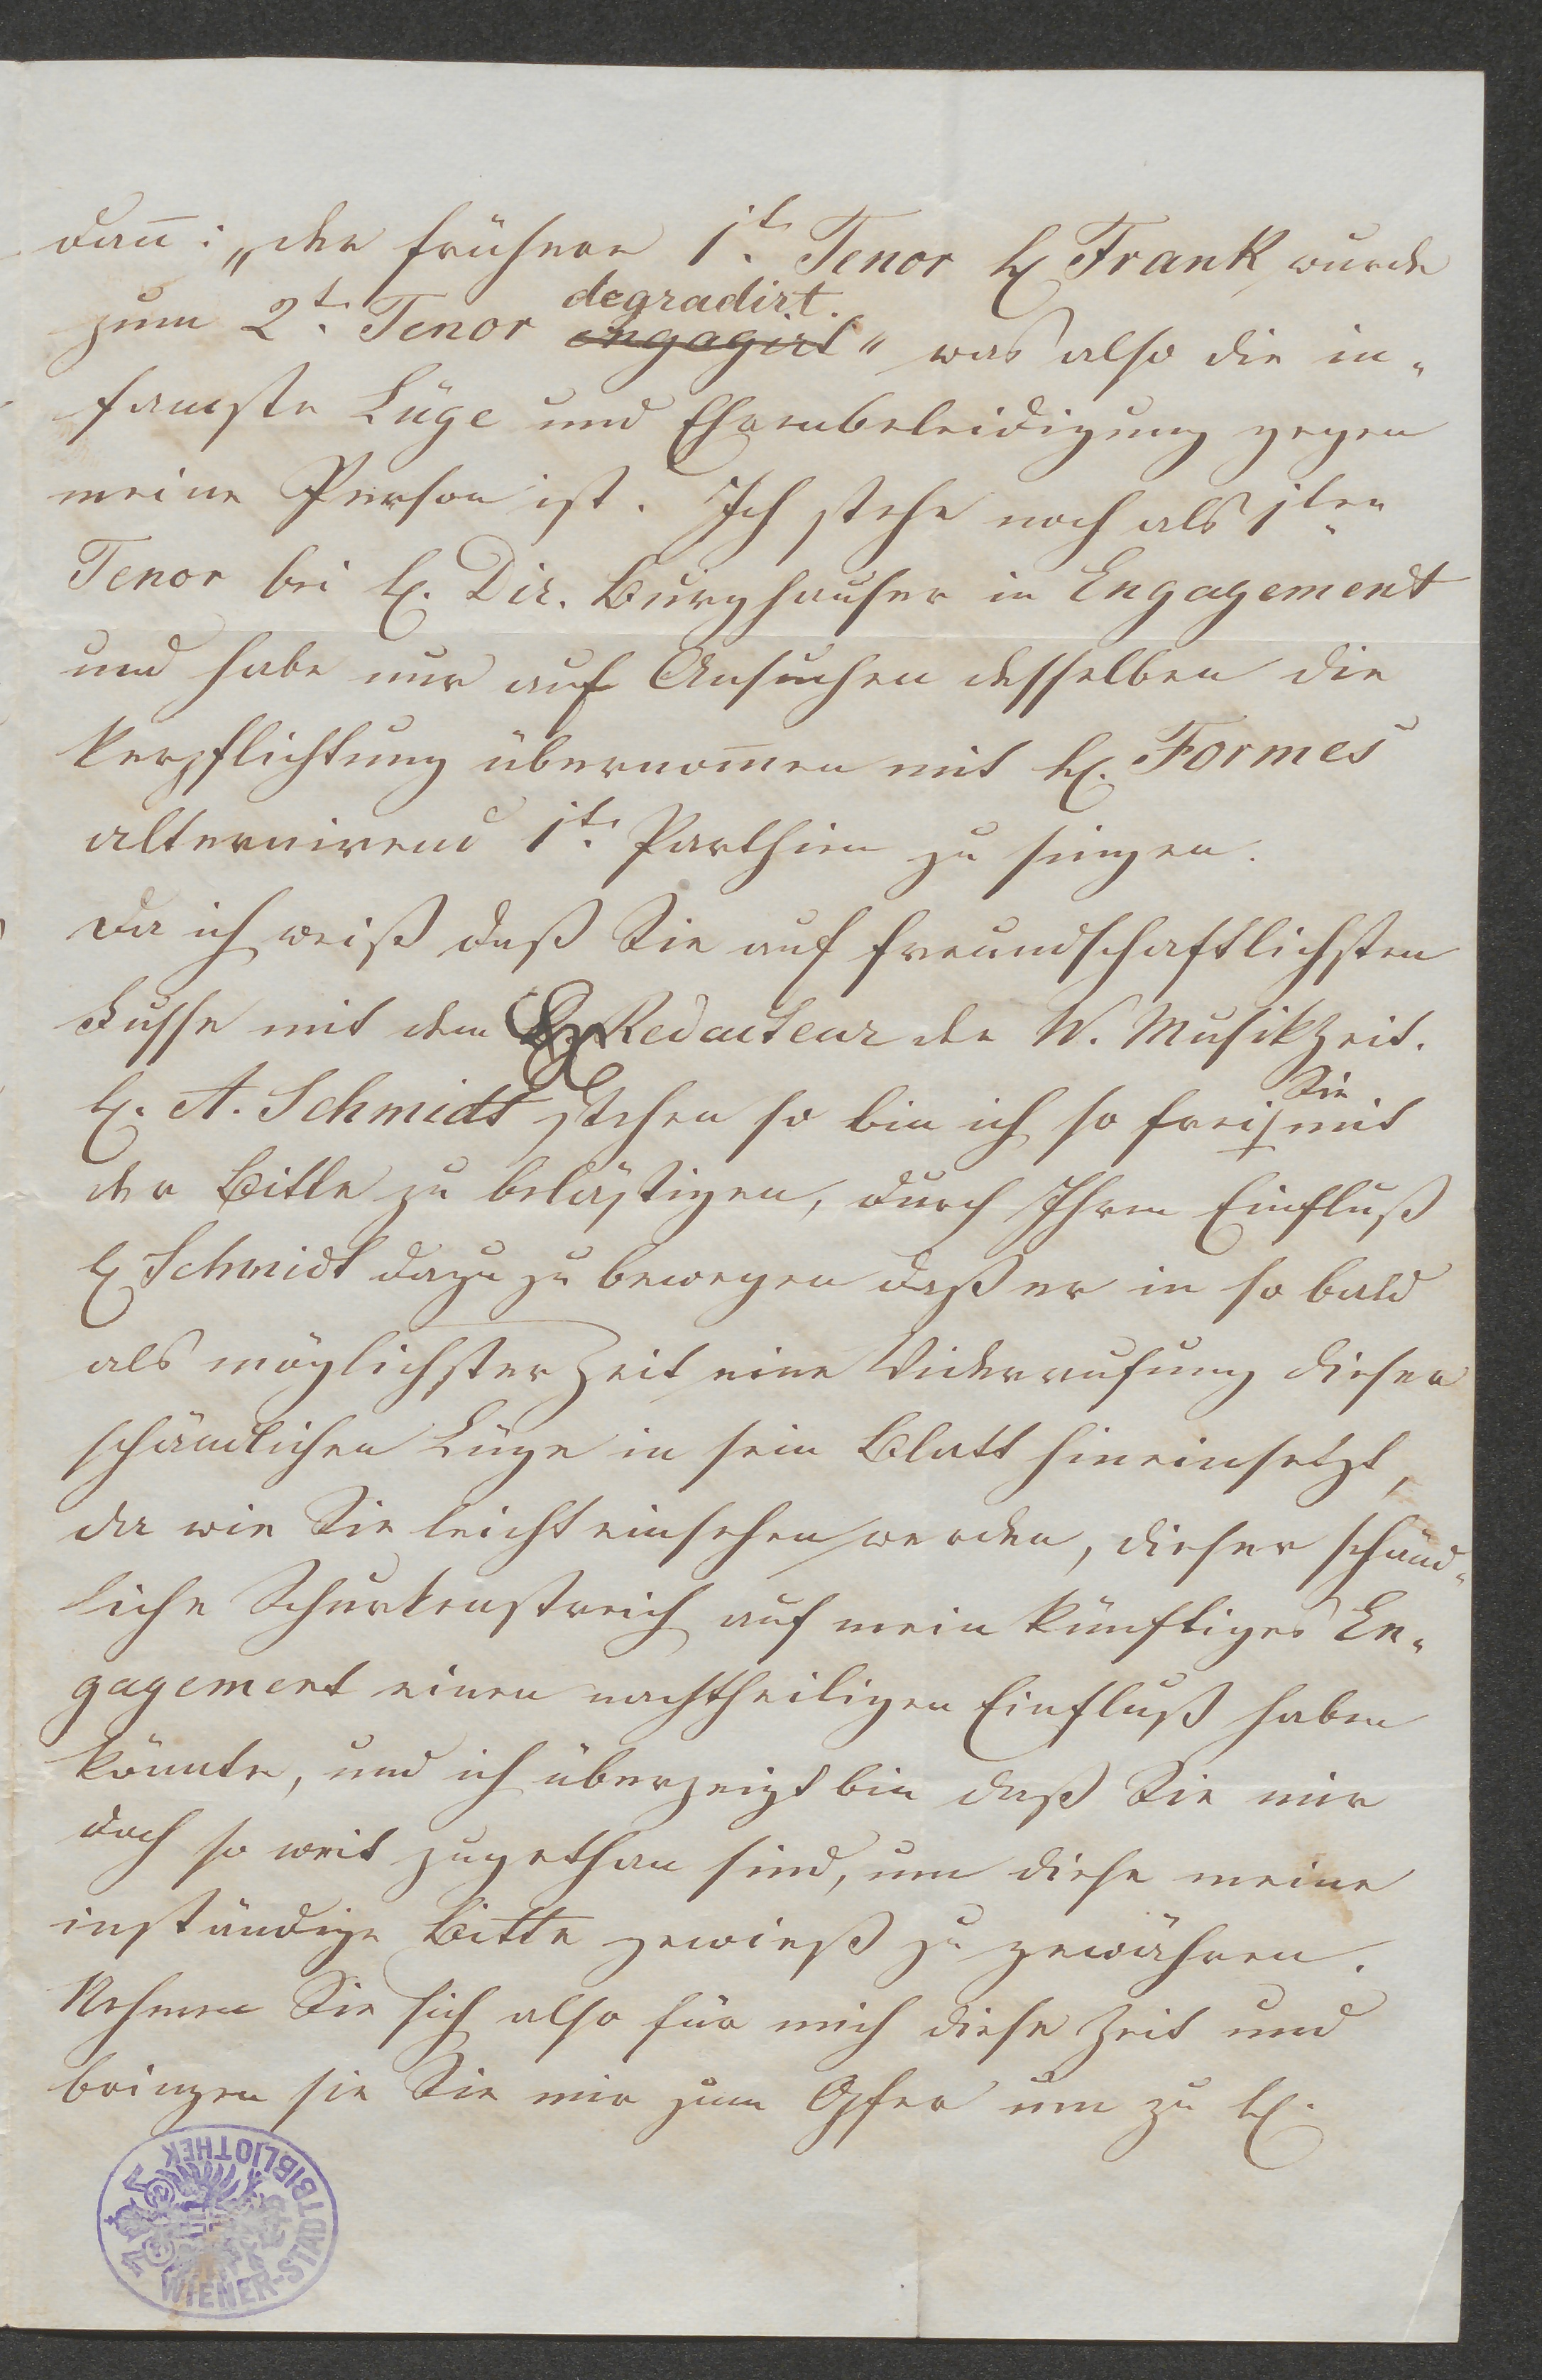 dan̄: „der frühere 1te Tenor H Frank wurde
zum 2te Tenor degradirt.
engagirt“ was also die in„
famste Lüge und Ehrenbeleidigung gegen
meine Person ist. Ich stehe noch als 1ten
Tenor bei H. Dir. Burghauser in Engagement
und habe nur auf Ansuchen desselben die
Verpflichtung übernom̄en mit H. Formes
alternirend 1te Parthien zu singen.
Da ich weiß daß Sie auf freundschaftlichsten
Fusse mit dem Redacteur der W. Musikzeit.
H. A. Schmidt stehen so bin ich so frei Sie mit
der Bitte zu belästigen, durch Ihren Einfluß
H Schmidt dazu zu bewegen daß er in so bald
als möglichster Zeit eine Widerrufung dieser
schändlichen Lüge in sein Blatt hineinsetzt,
da wie Sie leicht einsehen werden, dieser schänd„
liche Schurkenstreich auf mein künftiges En„
gagement einen nachtheiligen Einfluß haben
könnte, und ich überzeigt bin daß Sie mir
doch so weit zugethan sind, um diese meine
inständige Bitte gewieß zu gewähren.
Nehmen Sie sich also für mich diese Zeit und
bringen sie Sie mir zum Opfer um zu H.
WIENER-STADTBIBLIOTHEK